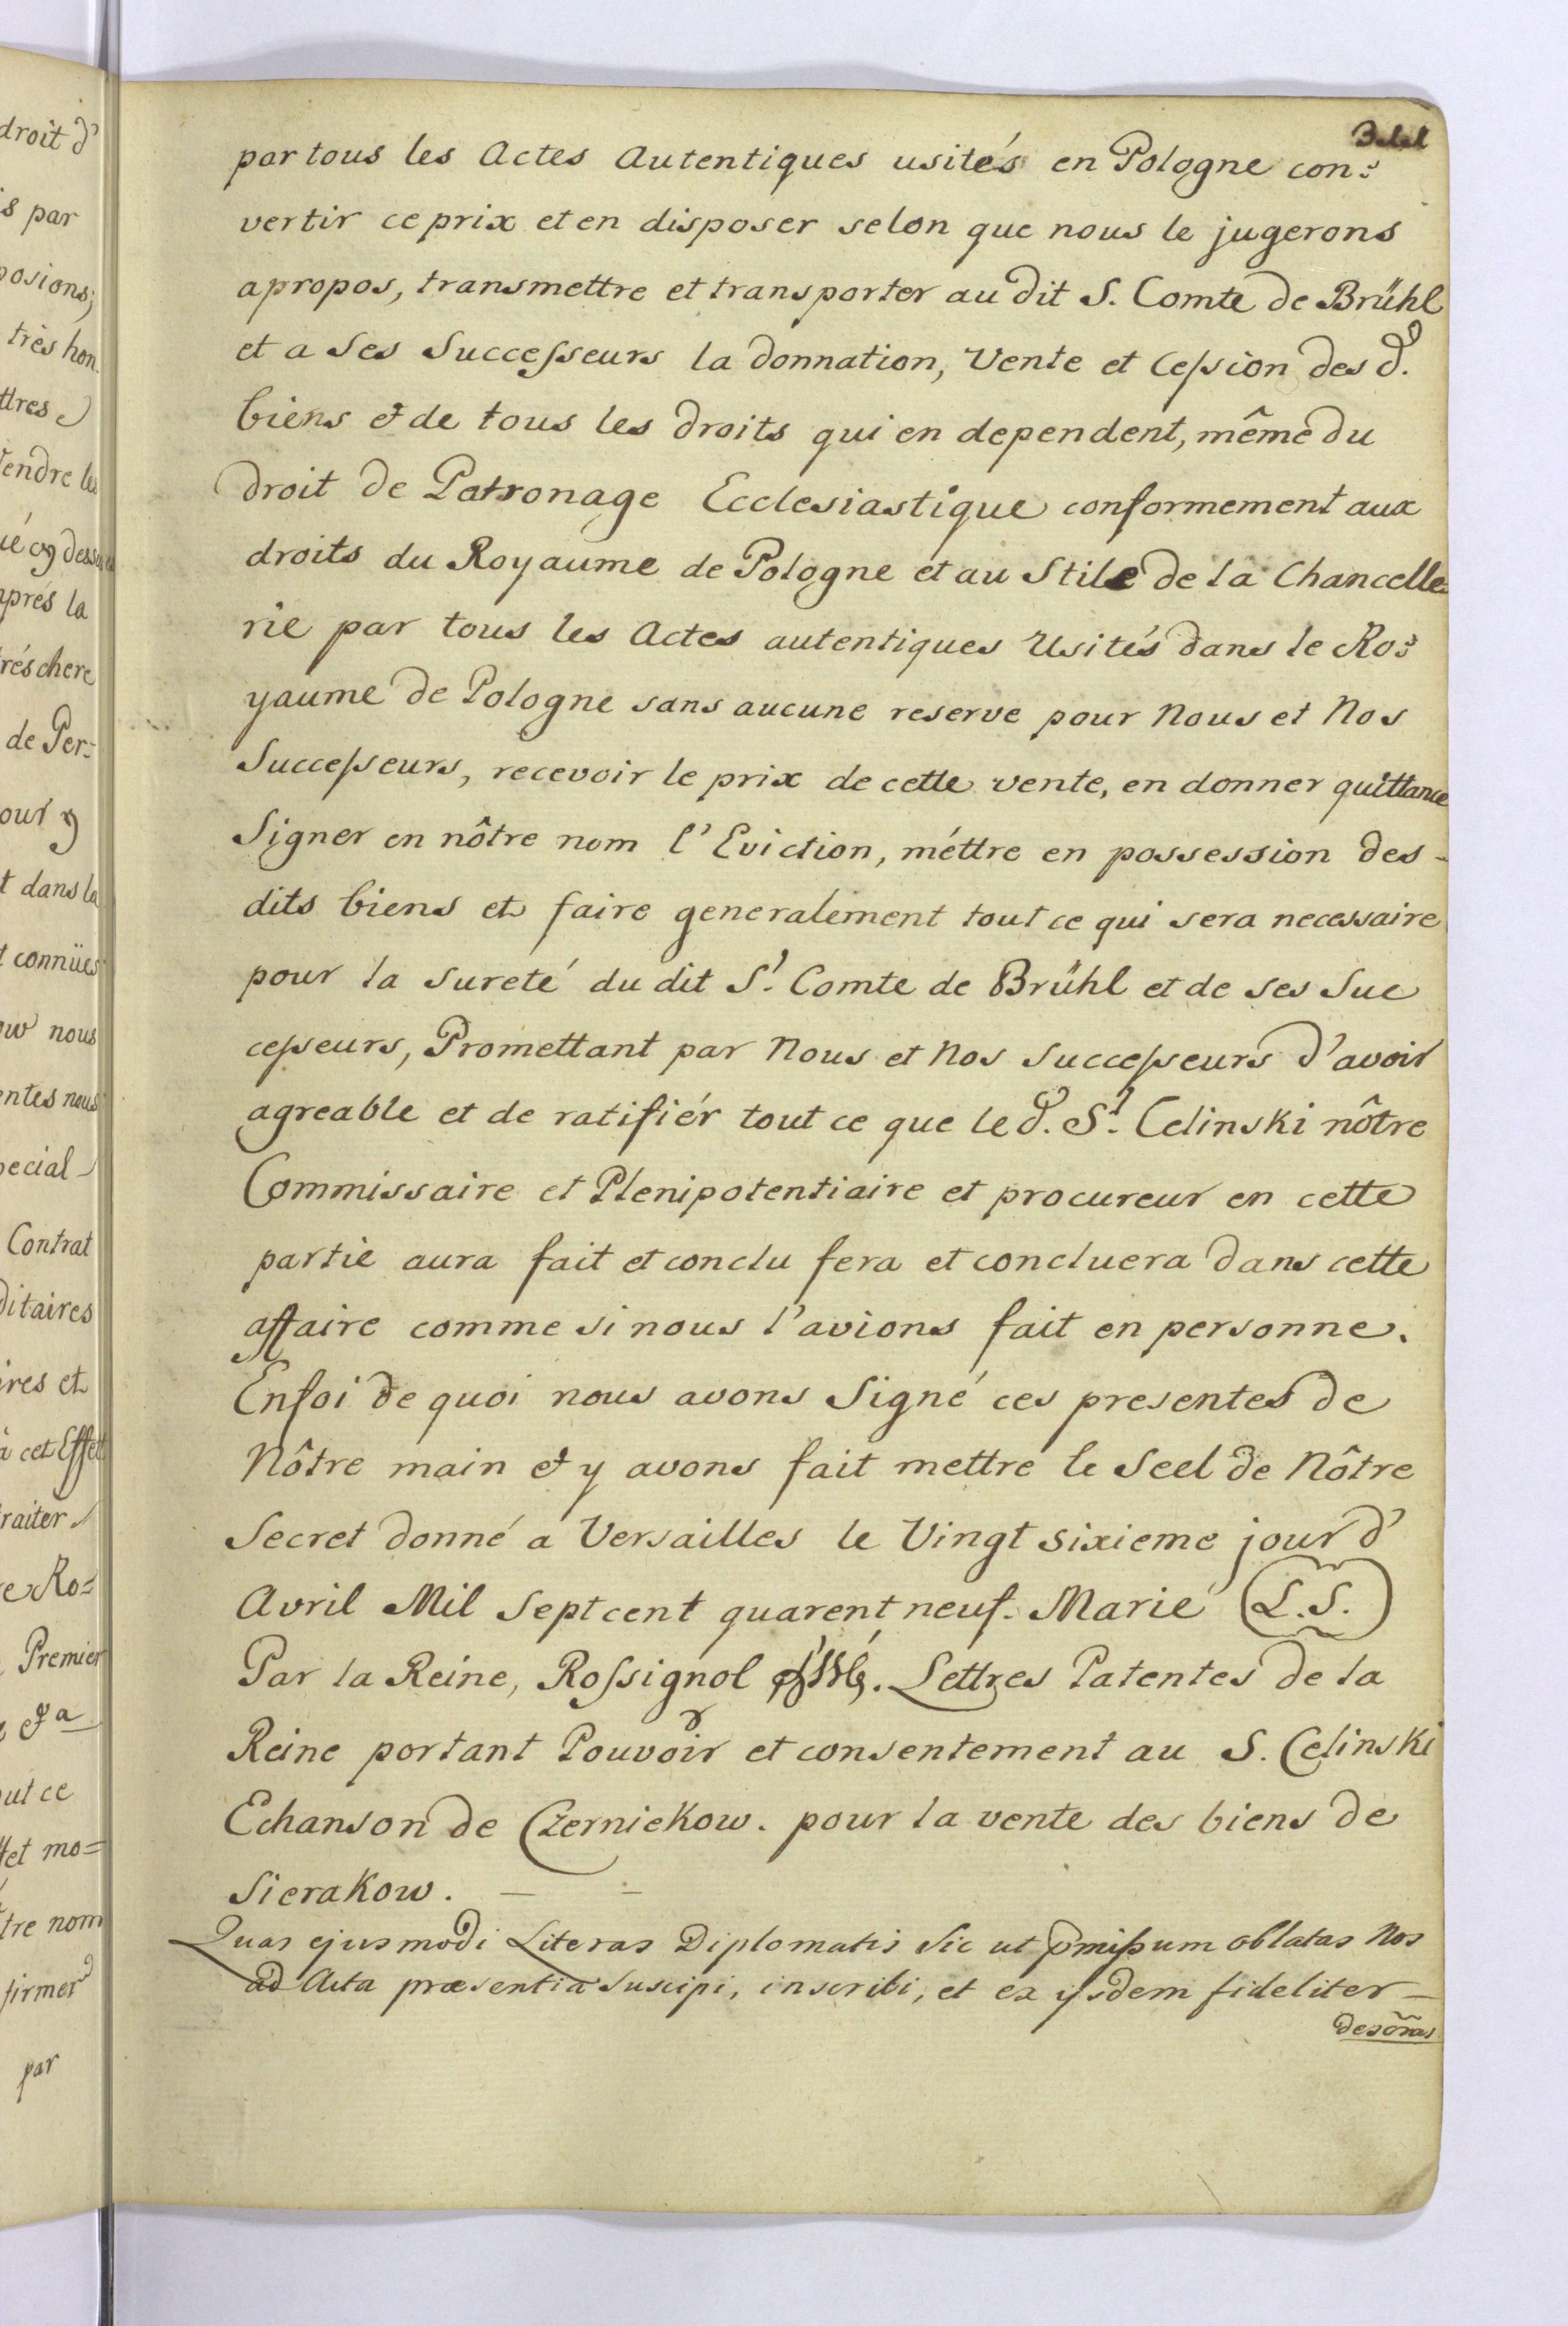 droit d'
is par
posions;
très hon
ttres
Vendre les
ué cy dessu
aprés la
trés chere
de Per=
our y
t dans la
t connües
ow nous
entes nous
pecial
Contrat
ditaires
ires et
à cet Effet
traiter
e Ro=
Premier
et mo=
tre nom
firmer
par
par tous les Actes Autentiques usités en Pologne con=
vertir ce prix et en disposer selon que nous le jugerons
apropos, transmettre et transporter au dit S. Comte de Brühl
et a Ses Successeurs la donnation, Vente et Cession des d.
biens & de tous les droits qui en dependent, même du
droit de Patronage Ecclesiastique conformement aux
droits du Royaume de Pologne et au Stile de la Chancelle=
rie par tous les Actes autentiques Usités dans le Ro=
yaume de Pologne sans aucune reserve pour Nous et Nos
Successeurs, recevoir le prix de cette vente, en donner quittance
Signer en nôtre nom l'Eviction, méttre en possession des-
dits biens et faire generalement tout ce qui sera necessaire
pour la sureté du dit Sr. Comte de Brühl et de ses Suc
cesseurs, Promettant par Nous et Nos Successeurs d'avoir
agreable et de ratifiér tout ce que le d. Sr. Celinski nôtre
Commissaire et Plenipotentiaire et procureur en cette
partie aura fait et conclu fera et concluera dans cette
affaire comme si nous l'avions fait en personne.
Enfoi de quoi nous avons Signé ces presentes de
Nôtre main & y avons fait mettre le Seel de Nôtre
Secret donné a Versailles le Vingt sixieme jour d'
Avril Mil Sept cent quarent neuf. Marie (L.S.)
Par la Reine, Rossignol Lettres Patentes de la
Reine portant Pouvoir et consentement au S. Celinski
Echanson de Czerniekow. pour la vente des biens de
Sierakow. — —
Quas ejusmodi Literas Diplomatis Sic ut pmissum oblatas Nos
ad Acta præsentia Suscipi, inscribi, et ex ijsdem fideliter —